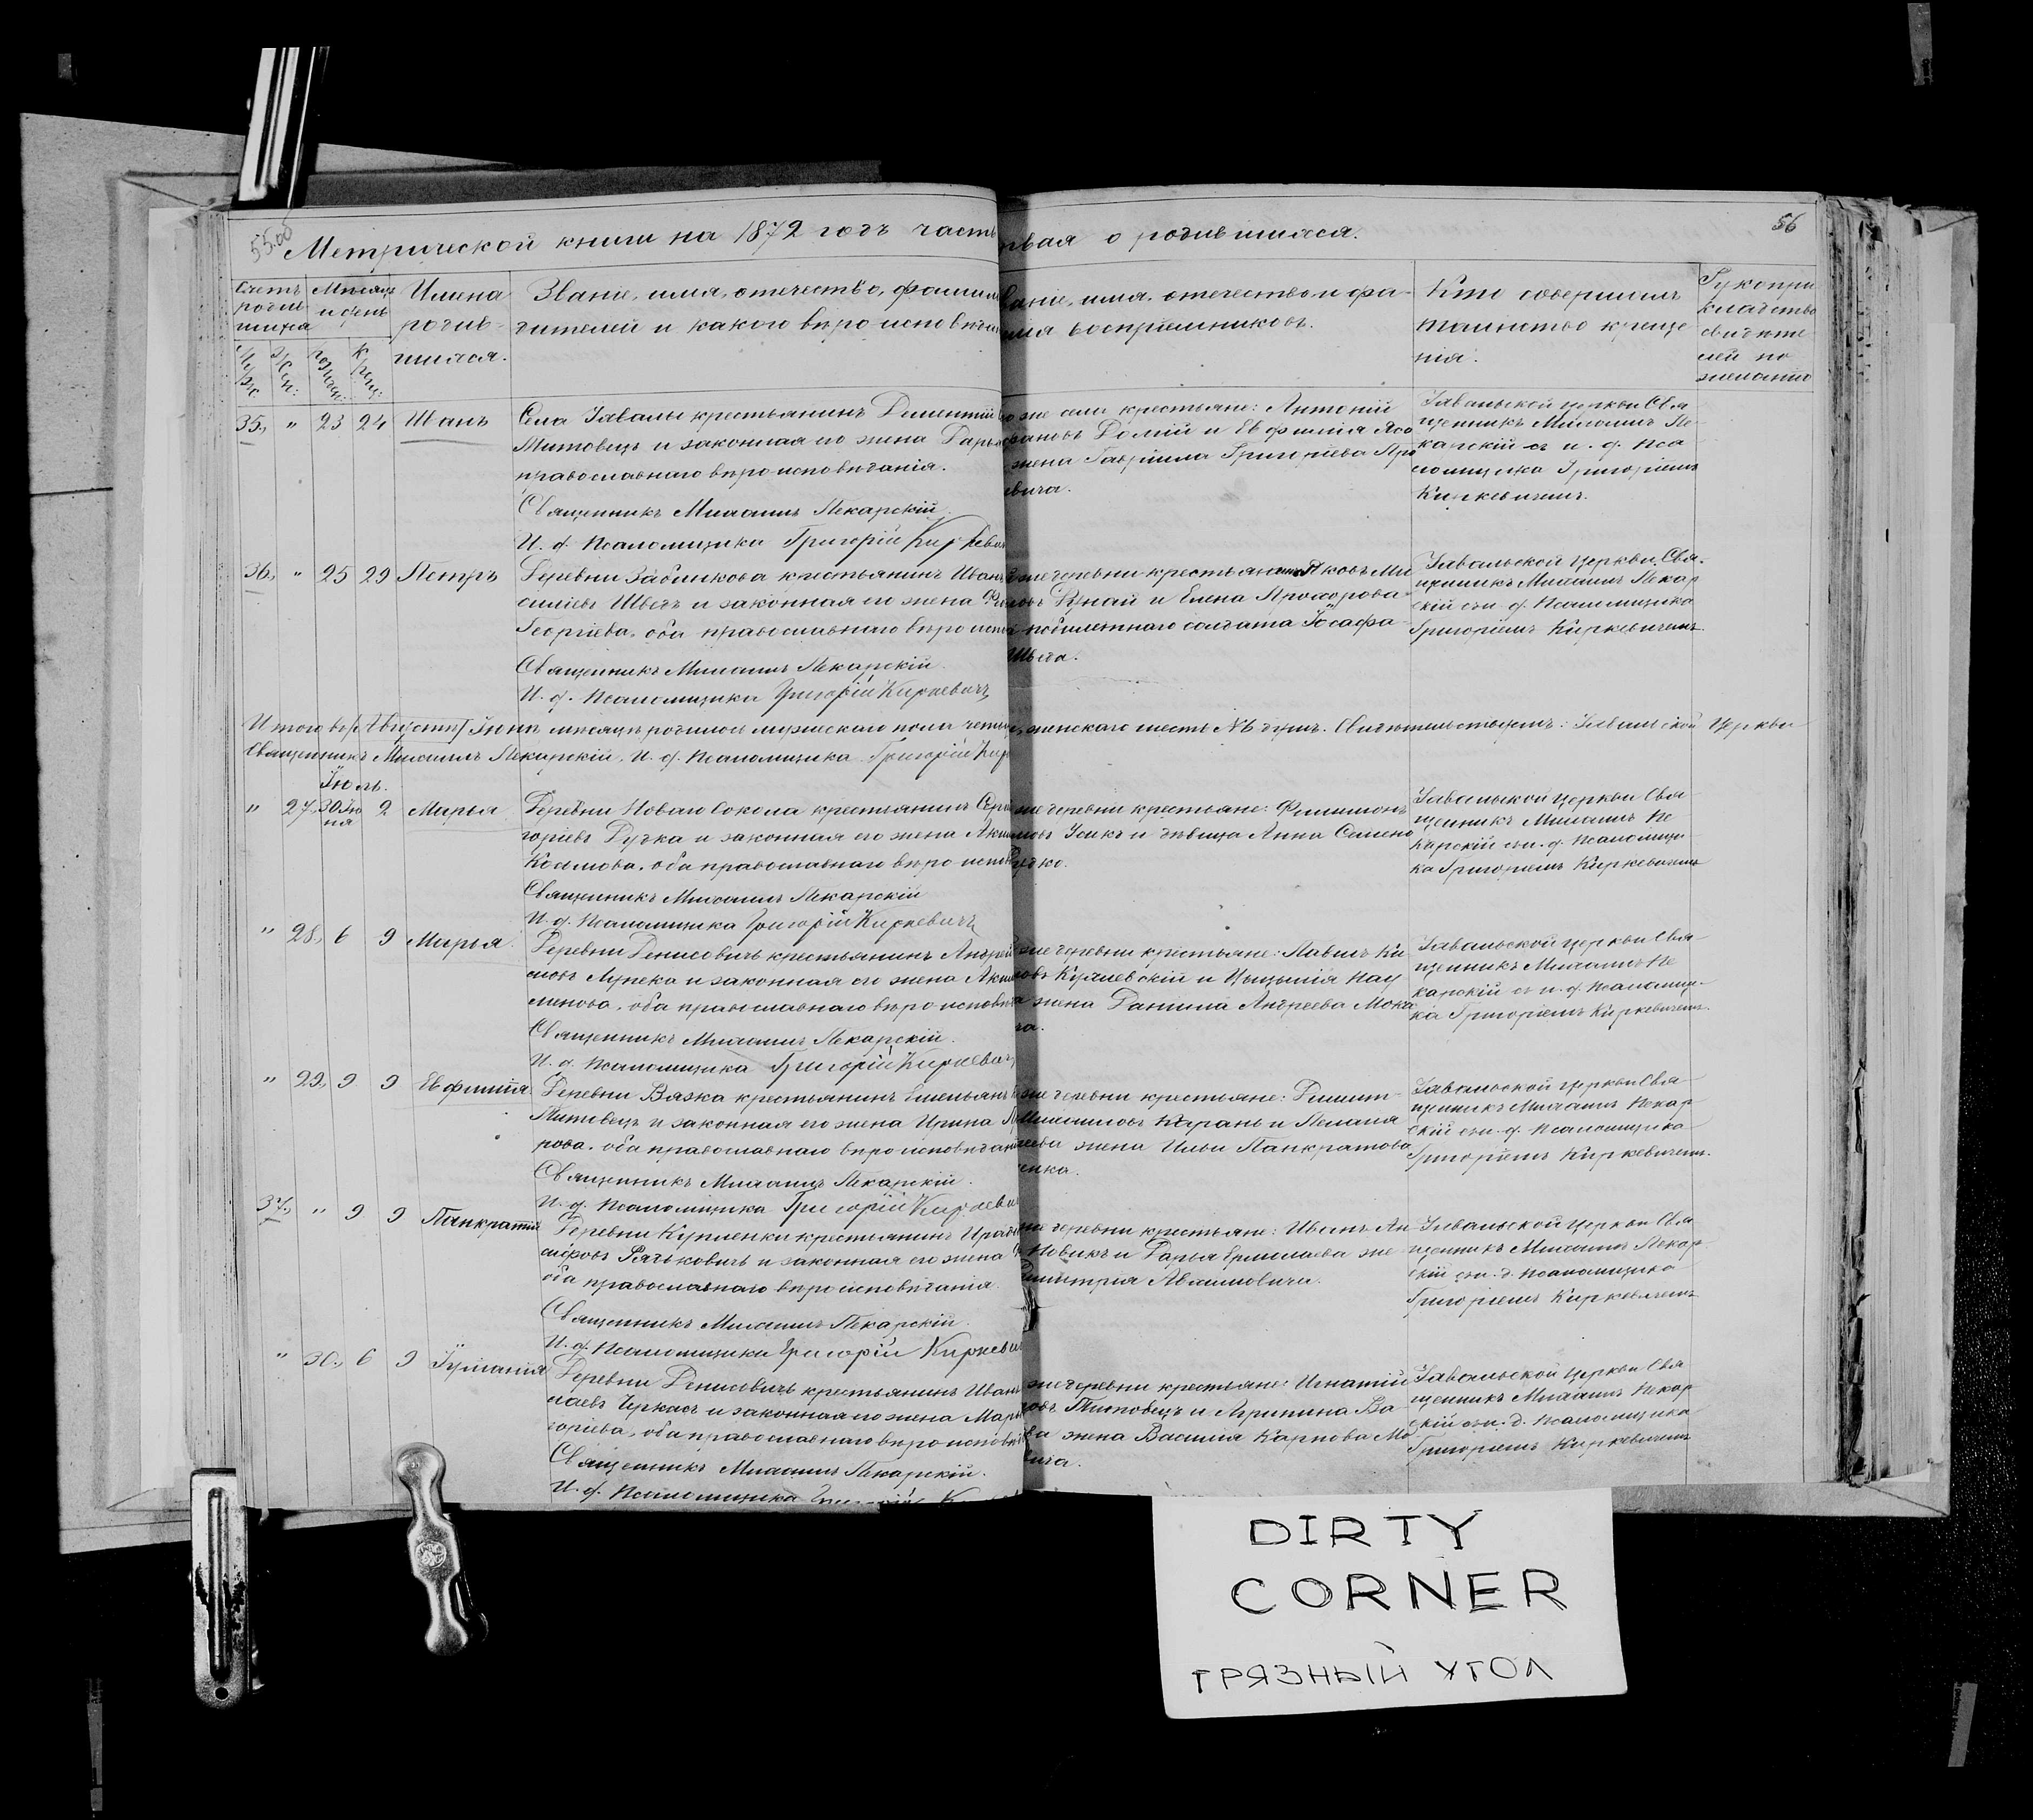 55.об
56
Метрической книги на 1872 годъ часть
рвая о родившихся.
Счетъ родив шихся
Мѣсяцъ и день
Имена родив- шихся.
Званіе, имя, отечество, фамилія
дителей и какого вѣроисповѣдан
аніе, имя, отечество и фа-
лія воспріемниковъ.
Кто совершалъ
таинство креще
нія.
Рукопри
кладство
свидѣте
лей по
желанію
35. " 23 24 Иванъ
Села Завалы крестьянинъ Дементій
Митовецъ и законная его жена Дарья
православнаго вѣроисповѣданія.
Священникъ Михаилъ Пекарскій
И. д. Псаломщика Григорій Киркевич
о же села крестьяне: Антоній
и Евфимія
жена Гавріила Григоріева
вича.
Завальской церкви Свя
щенникъ Михаилъ Пе-
карскій съ и. д. Пса
ломщика Григоріемъ
Киркевичемъ.
36. " 25 29 Петръ
Деревни крестьянинъ Иванъ
силіевъ Шведъ и законная его жена
Георгіева, оба православнаго вѣроиспов
Священникъ Михаилъ Пекарскій
И. д. Псаломщика Григорій Киркевичъ
же деревни
и Елена Прохорова
солдата Іосафа
Шведа.
Завальской церкви Свя-
щенникъ Михаилъ Пекар
скій съ и. д. Псаломщика
Григоріемъ Киркевичемъ.
Итого въ [Августѣ] Іюнѣ мѣсяцѣ родилось мужескаго пола четыре, женскаго шесть душъ. Свидѣтельствуемъ: Завальской Церкви
Священникъ Михаилъ Пекарскій, И. д. Псаломщика Григорій Кир
Іюль.
" 27. 30 Іюня 2 Марья
Деревни Новаго Сокола крестьянинъ
горіевъ Дудка и законная его жена
Козмова, оба православнаго вѣроиспов
Священникъ Михаилъ Пекарскій
И. д. Псаломщика Григорій Киркевичъ
же деревни крестьяне: Филимонъ
Усикъ и дѣвица Анна Семено
Завальской церкви Свя
щенникъ Михаилъ Пе
карскій съ и. д. Псаломщи
ка Григоріемъ Киркевичемъ
" 28. 6 9 Марья
Деревни Денисовичъ крестьянинъ Андрей
и законная его жена
оба православнаго вѣроисповѣд
Священникъ Михаилъ Пекарскій.
И. д. Псаломщика Григорій Киркевич
же деревни крестьяне: Павелъ
и Нау
жена Даніила Андреева
ча.
Завальской церкви Свя
щенникъ Михаилъ Пе
карскій съ и. д. Псаломщи-
ка Григоріемъ Киркевичемъ.
" 29. 9 9 Евфимія
Деревни Вязка крестьянинъ Емельянъ
Митовецъ и законная его жена Ирина
рова, оба православнаго вѣроисповѣдан
Священникъ Михаилъ Пекарскій.
И. д. Псаломщика Григорій Киркеви
же деревни крестьяне:
и Пелагія
жена Ильи Панкратова
енка.
Завальской церкви Свя
щенникъ Михаилъ Пекар
скій съ и. д. Псаломщика
Григоріемъ Киркевичемъ.
37. " 9 9 Панкратій
Деревни Купленки крестьянинъ
и законная его жена
оба православнаго вѣроисповѣданія.
Священникъ Михаилъ Пекарскій.
И. д. Псаломщика Григорій Киркеви
же деревни крестьяне: Иванъ Ан
Новикъ и Дарья жe
Димитрія
Завальской церкви Свя
щенникъ Михаилъ Пекар
скій съ и. д. Псаломщика
Григоріемъ Киркевичемъ
" 30. 6 9 Іуліанія
Деревни Денисовичъ крестьянинъ Иванъ
лаевъ Черкасъ и законная его жена Марья
горіева, оба православнаго вѣроисповѣ
Священникъ Михаилъ Пекарскій.
И. д. Псаломщика
же деревни крестьяне: Игнатій
Титовецъ и Агрипина Ва
жена Василія Карпова
вича.
Завальской церкви Свя
щенникъ Михаилъ Пекар
скій съ и. д. Псаломщика
Григоріемъ Киркевичемъ
DIRTY
CORNER
ГРЯЗНЫЙ УГОЛ